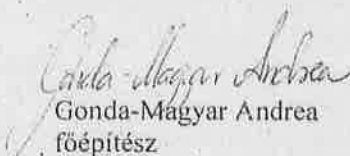 Gonda-Magyar Andrea
Gonda-Magyar Andrea
főépítész